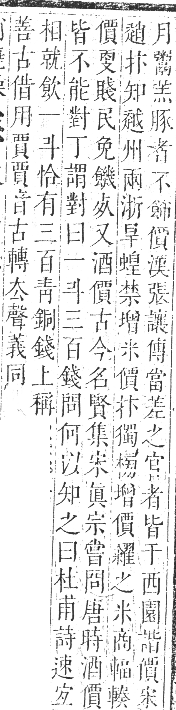 月鬻羔豚者不飾價漢張讓傳當差之官者皆于西園諧價宋
趙抃知越州兩浙旱蝗禁增米價抃獨榜增價糴之米商輻輳
價更賤民免饑歿又酒價古今名賢集宋眞宗嘗問唐時酒價
皆不能對丁謂對曰一斗三百錢問何以知之曰杜甫詩速宜
相就飲一斗恰有三百靑銅錢上稱
善古借用賈賈音古轉去聲義同